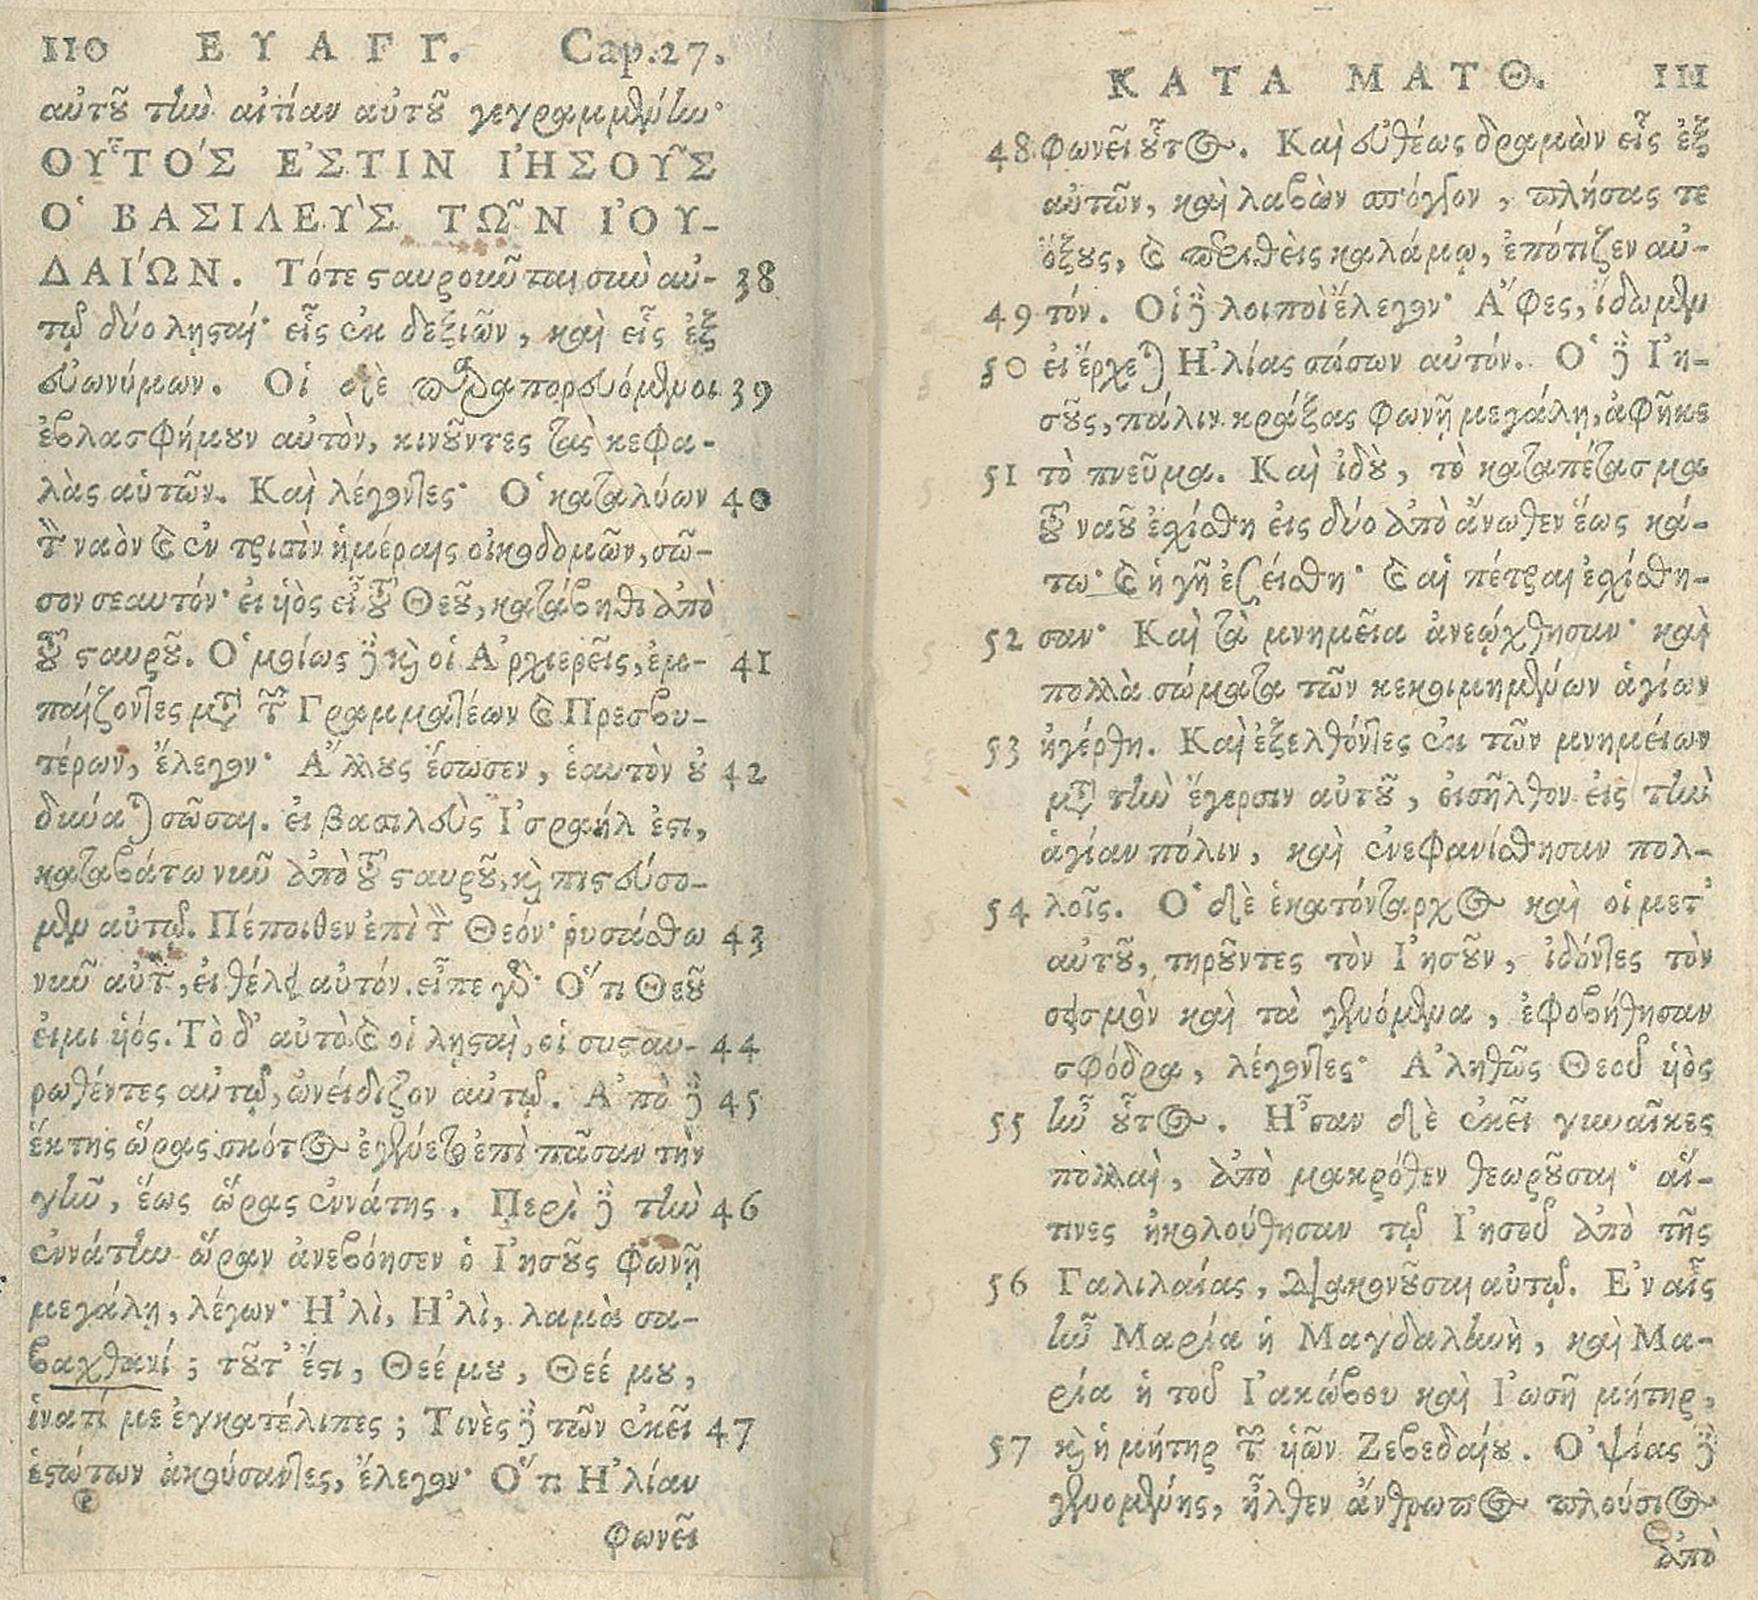 110 ΕΥΑΓΓ. Cap.27.
αὐτοῦ τὴν αἰτίαν αὐτοῦ γεγραμμένην·
ΟΥ͂ΤΟ΄Σ Ε᾿ΣΤΙΝ Ι᾿ΗΣΟΥ͂Σ
Ο῾ ΒΑΣΙΛΕΥ`Σ ΤΩ͂Ν Ι᾿ΟΥ-
ΔΑΙ΄ΩΝ. Τότε σαυροῦνται σὺν αὐ- 38
τῷ δύο λῃσταί· εἷς ἐκ δεξιῶν, καὶ εἷς ἐξ
εὐωνύμων. Οἱ δὲ παραπορευόμενοι 39
ἐβλασφήμουν αὐτὸν, κινοῦντες τὰς κεφα-
λὰς αὑτῶν. Καὶ λέγοντες· Ο῾ καταλύων 40
τὸν ναὸν καὶ ἐν τρισὶν ἡμέραις οἰκοδομῶν, σῶ-
σον σεαυτόν· εἰ υἱὸς εἶ τοῦ Θεοῦ, κατάβηθι ἀπὸ
τοῦ σταυροῦ. Ο῾μοίως δὲ καὶ οἱ Α᾿ρχιερεῖς, ἐμ- 41
παίζοντες μετὰ τῶν Γραμματέων καὶ Πρεσβυ-
τέρων, ἔλεγον· Α῎λλους ἔσωσεν, ἑαυτὸν οὐ 42
δύναται σῶσαι. εἰ βασιλεὺς Ι᾿σραήλ ἐστι,
καταβάτω νῦν ἀπὸ τοῦ σταυροῦ, καὶ πιστεύσο-
μεν αὐτῷ. Πέποιθεν ἐπὶ τὸν Θεόν· ῥυσάσθω 43
νῦν αὐτὸν, εἰ θέλει αὐτόν. εἶπε γὰρ· Ο῞τι Θεοῦ
εἰμι υἱός. Τὸ δ᾿ αὐτὸ καὶ οἱ λῃσταὶ, οἱ συσταυ- 44
ρωθέντες αὐτῷ, ὠνείδιζον αὐτῷ. Α᾿πὸ δὲ 45
ἕκτης ὥρας σκότος ἐγένετο ἐπὶ πᾶσαν τὴν
γῆν, ἕως ὥρας ἐννάτης. Περὶ δὲ τὴν 46
ἐννάτην ὥραν ἀνεβόησεν ὁ Ι᾿ησοῦς φωνῇ
μεγάλῃ, λέγων· Η᾿λὶ, Η᾿λὶ, λαμὰ σα-
βαχθανί; τοῦτ᾿ ἔστι, Θεέ μου, Θεέ μου,
ἱνατί με ἐγκατέλιπες; Τινὲς δὲ τῶν ἐκεῖ 47
ἑστώτων ἀκούσαντες, ἔλεγον· Ο῞τι Η᾿λίαν
φωνεῖ
ΚΑΤΑ ΜΑΤΘ. 111
48 φωνεῖ οὗτος. Καὶ εὐθέως δραμὼν εἷς ἐξ
αὐτῶν, καὶ λαβὼν σπόγγον, πλήσας τε
ὄξους, καὶ περιθεὶς καλάμῳ, ἐπότιζεν αὐ-
49 τόν. Οἱ δὲ λοιποὶ ἔλεγον· Α῎φες, ἴδωμεν
50 εἰ ἔρχεται Η᾿λίας σώσων αὐτόν. Ο῾ δὲ Ι᾿η-
σοῦς, πάλιν κράξας φωνῇ μεγάλῃ, ἀφῆκε
51 τὸ πνεῦμα. Καὶ ἰδοὺ, τὸ καταπέτασμα
τοῦ ναοῦ ἐσχίσθη εἰς δύο ἀπὸ ἄνωθεν ἕως κά-
τω· καὶ ἡ γῆ ἐσείσθη· καὶ αἱ πέτραι ἐσχίσθη-
52 σαν· Καὶ τὰ μνημεῖα ἀνεῴχθησαν· καὶ
πολλὰ σώματα τῶν κεκοιμημένων ἁγίων
53 ἠγέρθη. Καὶ ἐξελθόντες ἐκ τῶν μνημείων
μετὰ τὴν ἔγερσιν αὐτοῦ, εἰσῆλθον εἰς τὴν
ἁγίαν πόλιν, καὶ ἐνεφανίσθησαν πολ-
54 λοῖς. Ο῾ δὲ ἑκατόνταρχος καὶ οἱ μετ᾿
αὐτοῦ, τηροῦντες τὸν Ι᾿ησοῦν, ἰδόντες τὸν
σεισμὸν καὶ τὰ γενόμενα, ἐφοβήθησαν
σφόδρα, λέγοντες· Α᾿ληθῶς Θεοῦ υἱὸς
55 ἦν οὗτος. Η῏σαν δὲ ἐκεῖ γυναῖκες
πολλαὶ, ἀπὸ μακρόθεν θεωροῦσαι· αἵ-
τινες ἠκολούθησαν τῷ Ι᾿ησοῦ ἀπὸ τῆς
56 Γαλιλαίας, διακονοῦσαι αὐτῷ. Ε᾿ν αἷς
ἦν Μαρία ἡ Μαγδαληνὴ, καὶ Μα-
ρία ἡ τοῦ Ι᾿ακώβου καὶ Ι᾿ωσῆ μήτηρ,
57 καὶ ἡ μήτηρ τῶν υἱῶν Ζεβεδαίου. Ο᾿ψίας δὲ
γενομένης, ἦλθεν ἄνθρωπος πλούσιος
ἀπὸ